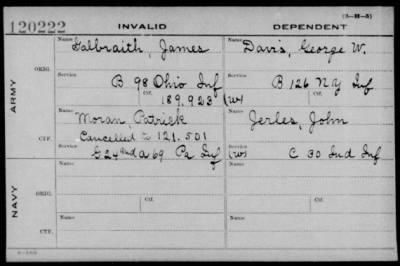 (3-H-5)
120222 INVALID DEPENDENT
Name Galbraith, James Name Davis, George W.
ARMY
ORIG.
Service B 98 Ohio Inf Service B 126 N Y Inf
Ctf. 189.923 (W) Ctf.
Name Moran, Patrick Name Jerles, John
Cancelled to 121.501
CTF.
Service G 24 and A 69 Pa Inf Service (W) C 30 Ind Inf
NAVY
Name Name
ORIG.
Ctf. Ctf.
Name Name
CTF.